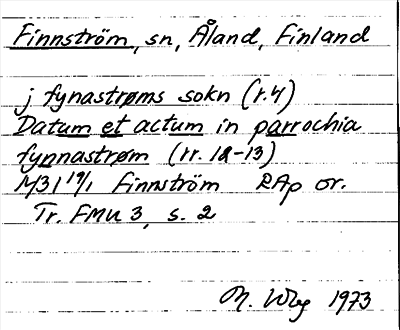 Finnström, sn, Åland, Finland
j fynastrøms sokn (r.4)
Datum et actum in parrochia
fynnastrøm (rr. 12-13)
1431 19/1 Finnström RAp or.
Tr. FMU 3, s. 2
M. Wbg 1973